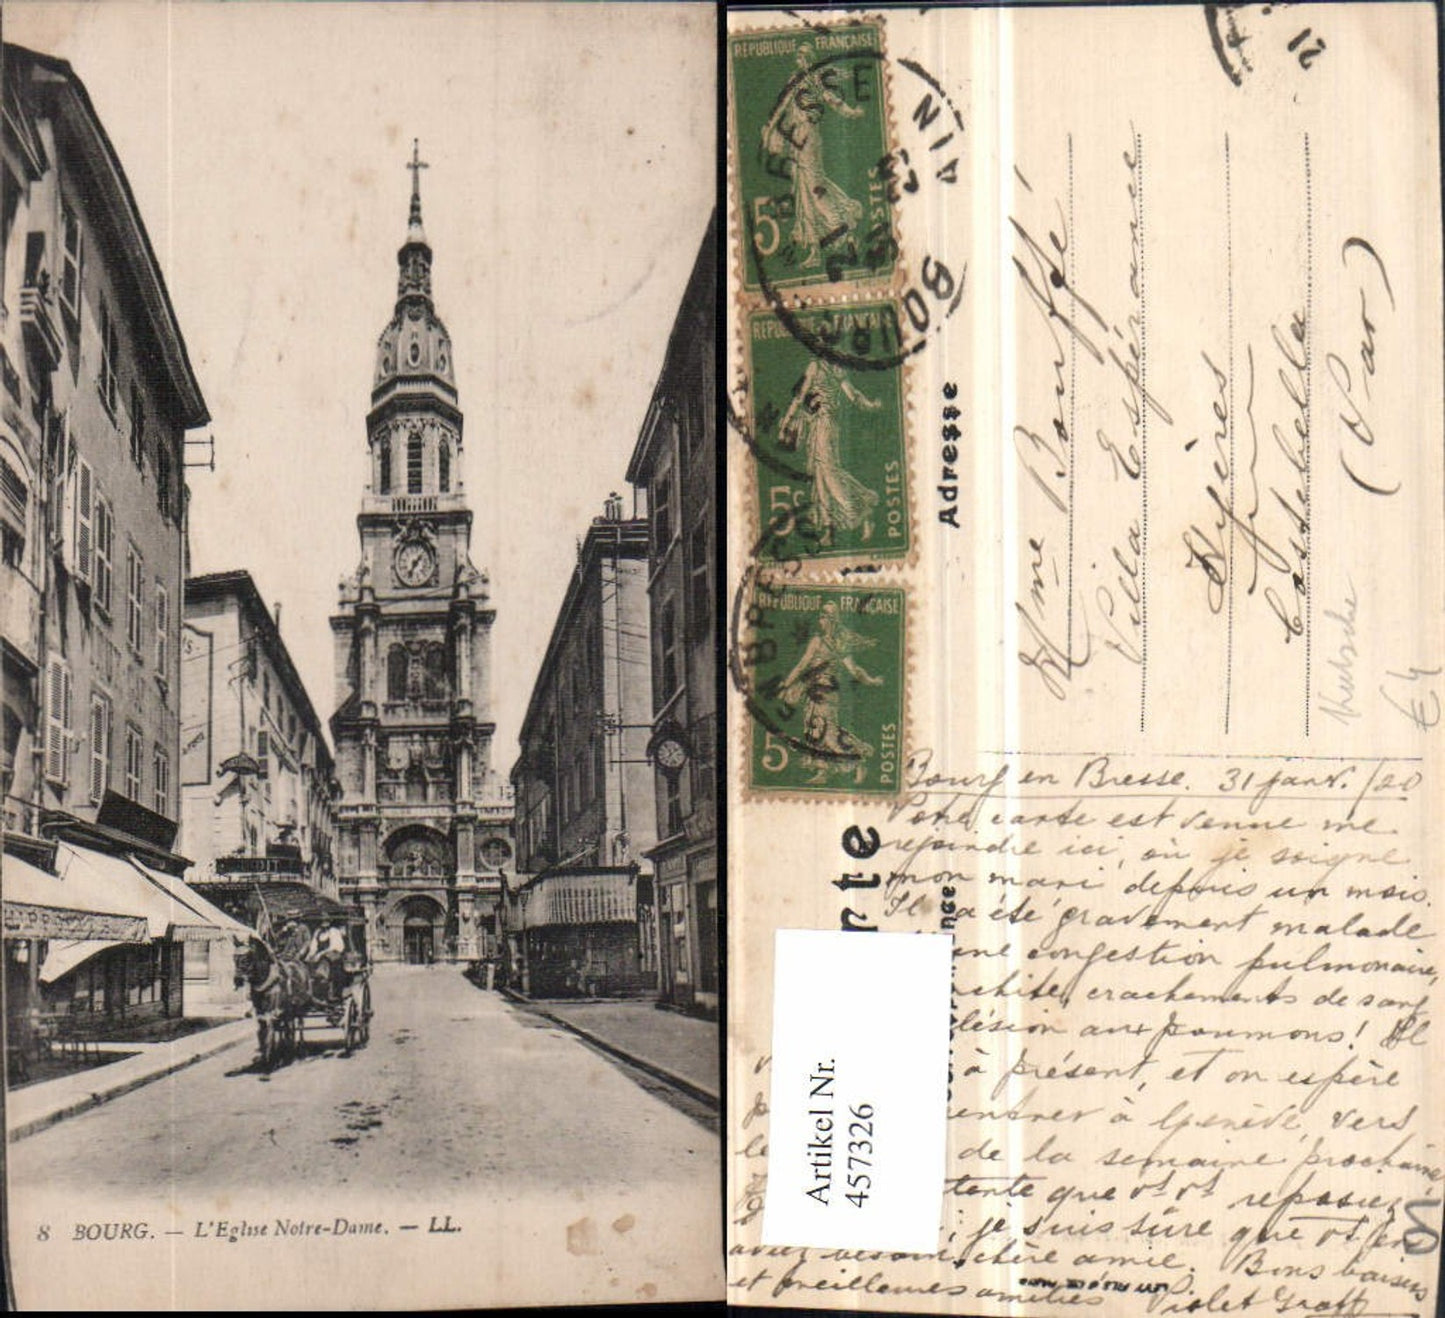 8 BOURG. — L'Eglise Notre-Dame. — LL.
REPUBLIQUE FRANÇAISE
5c
POSTES
REPUBLIQUE FRANÇAISE
5c
POSTES
REPUBLIQUE FRANÇAISE
5
POSTES
BOURG
BRESSE
AIN
21
Adresse
Mme Bouffé
Villa Espérance
Hyères
Costebelle
(Var)
€4
Artikel Nr.
457326
Bourg en Bresse. 31 janv. /20
Votre carte est venue me
rejoindre ici, où je soigne
mon mari depuis un mois.
Il a été gravement malade
une congestion pulmonaire,
crachements de sang
lésion aux poumons! Il
à présent, et on espère
rentrer à Genève, vers
le de la semaine prochaine
que vs vs reposiez
je suis sûre que vs en
aviez besoin, chère amie. Bons baisers
et meilleures amitiés Violet Graff